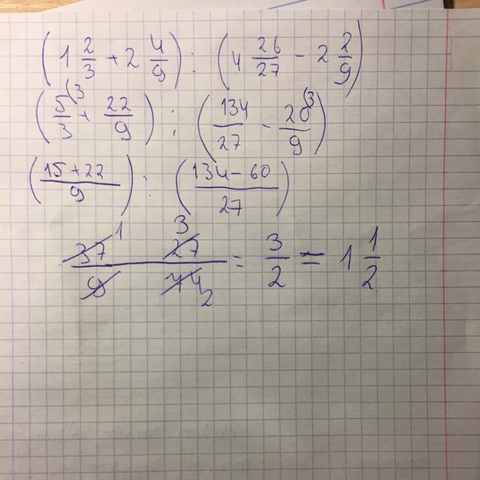 (1 2/3 + 2 4/9) : (4 26/27 - 2 2/9)
(5/3 (3 + 22/9) : (134/27 - 20/9 (3)
((15 + 22)/9) : ((134 - 60)/27)
37 1 27 3 / 9 74 2 = 3/2 = 1 1/2